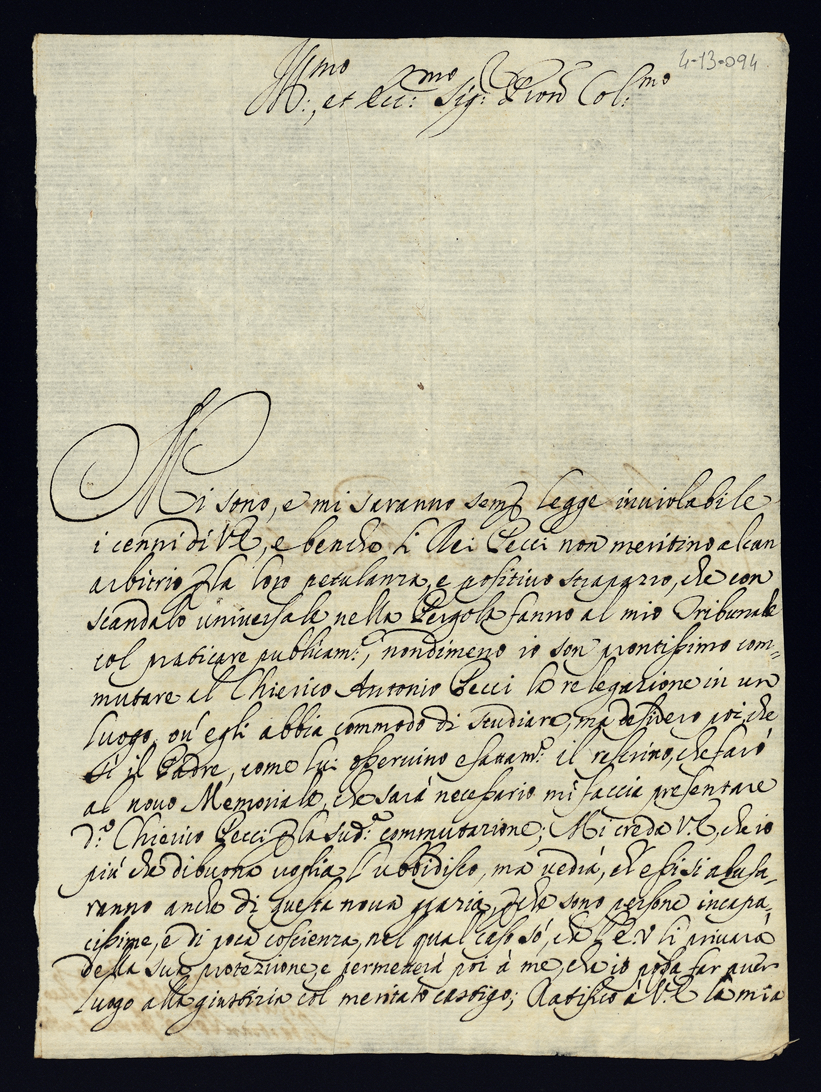 4-13-094
Ill:mo, et Ecc:mo Sig:r Pron Col:mo
Mi sono, e mi saranno semp legge inviolabile
i cenni di V.E., e benche li Rei Cecci non meritino alcun
arbitrio p la loro petulanza, e positivo strapazzo, che con
scandalo universale nella Pergola fanno al mio Tribunale
col praticare publicam:e, nondimeno io son prontissimo com=
mutare al Chierico Antonio Cecci la relegazione in un
luogo, ov'egli abbia commodo di studiare, ma desidero poi, che
sì il Padre, come lui osservino esattam:e il rescritto, che farò
al novo Memoriale, che sarà necessario mi faccia presentare
d:o Chierico Cecci p la sud:a commutazione; Mi creda V.E., che io
più che di buona voglia l'ubbidisco, ma vedrà, che essi si abusa=
ranno anche di questa nova grazia, pche sono persone incapa=
cissime, e di poca coscienza, nel qual caso sò, che l'E.V. li privarà
della sua protezzione, e permetterà poi à me, che io possa far aver
luogo alla giustizia col meritato castigo; Ratifico à V.E. la mia